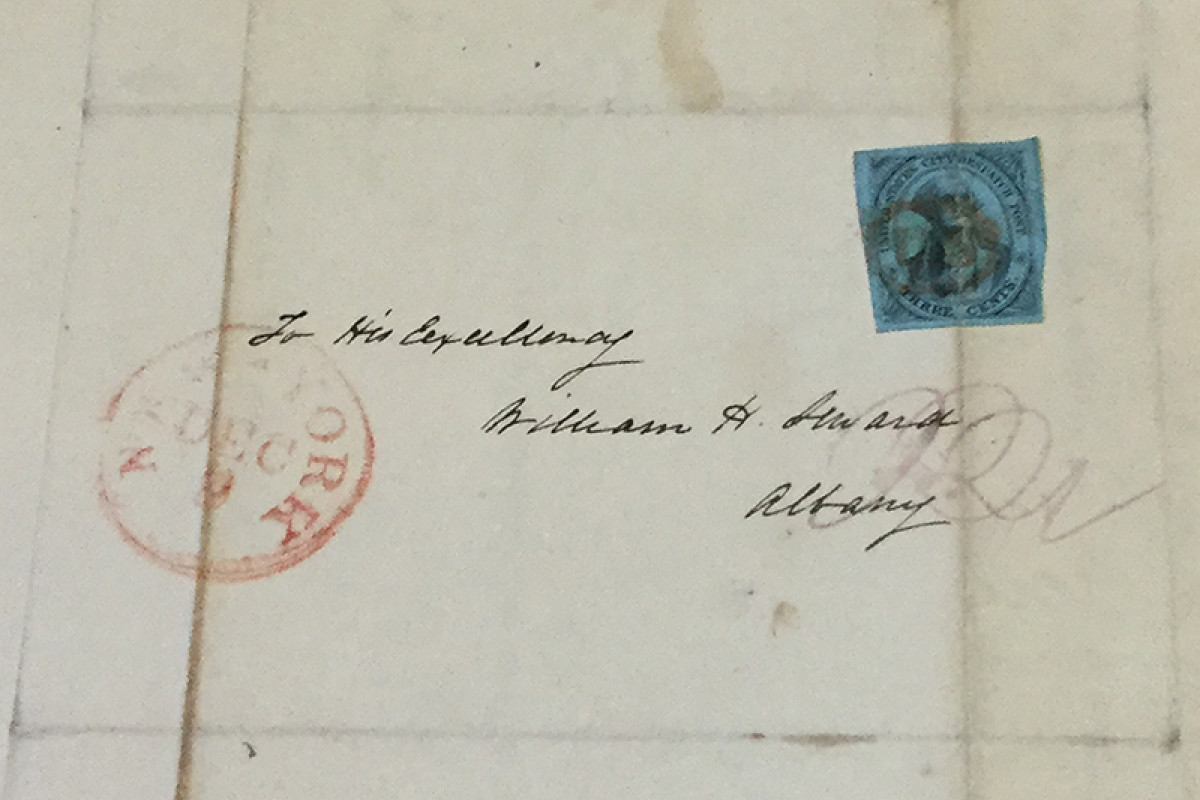 UNITED STATES CITY DESPATCH POST
THREE CENTS.
To His Excellency
William H. Seward
Albany
NEW YORK
DEC